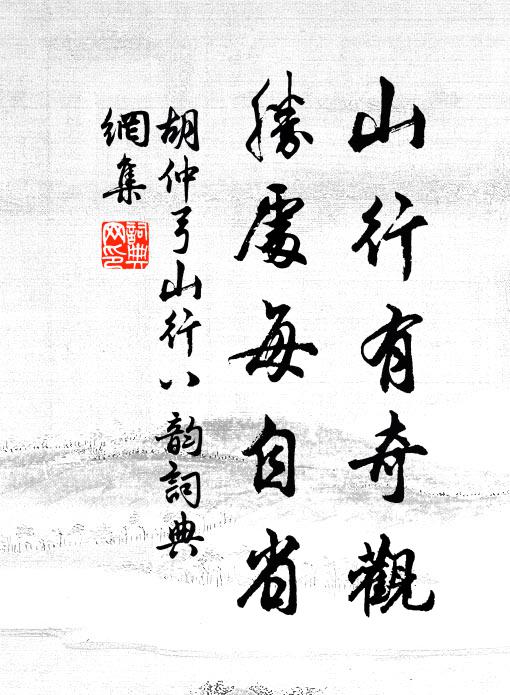 山行有奇觀
勝處每自省
胡仲弓山行八韵詞典
網集
詞典
网印